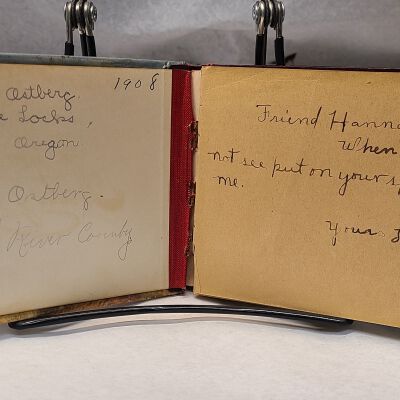 1908
Ostberg.
e Locks,
Oregon.
Ostberg.
River County
Friend Hanna
When
not see put on your sp
me.
Yours